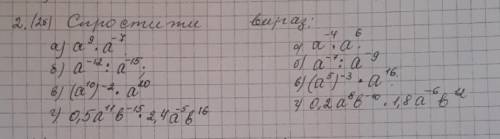 2. (2б) Спростити вираз:
а) a⁹ · a⁻⁷
б) a⁻¹² : a⁻¹⁵;
в) (a¹⁰)⁻² · a²⁰
г) 0,5a¹¹b⁻¹⁵ · 2,4a⁻⁵b¹⁶
а) a⁻⁴ · a⁶
б) a⁻⁷ : a⁻⁹
в) (a⁵)⁻³ · a¹⁶
г) 0,2a⁸b⁻¹⁰ · 1,8a⁻⁶b¹²